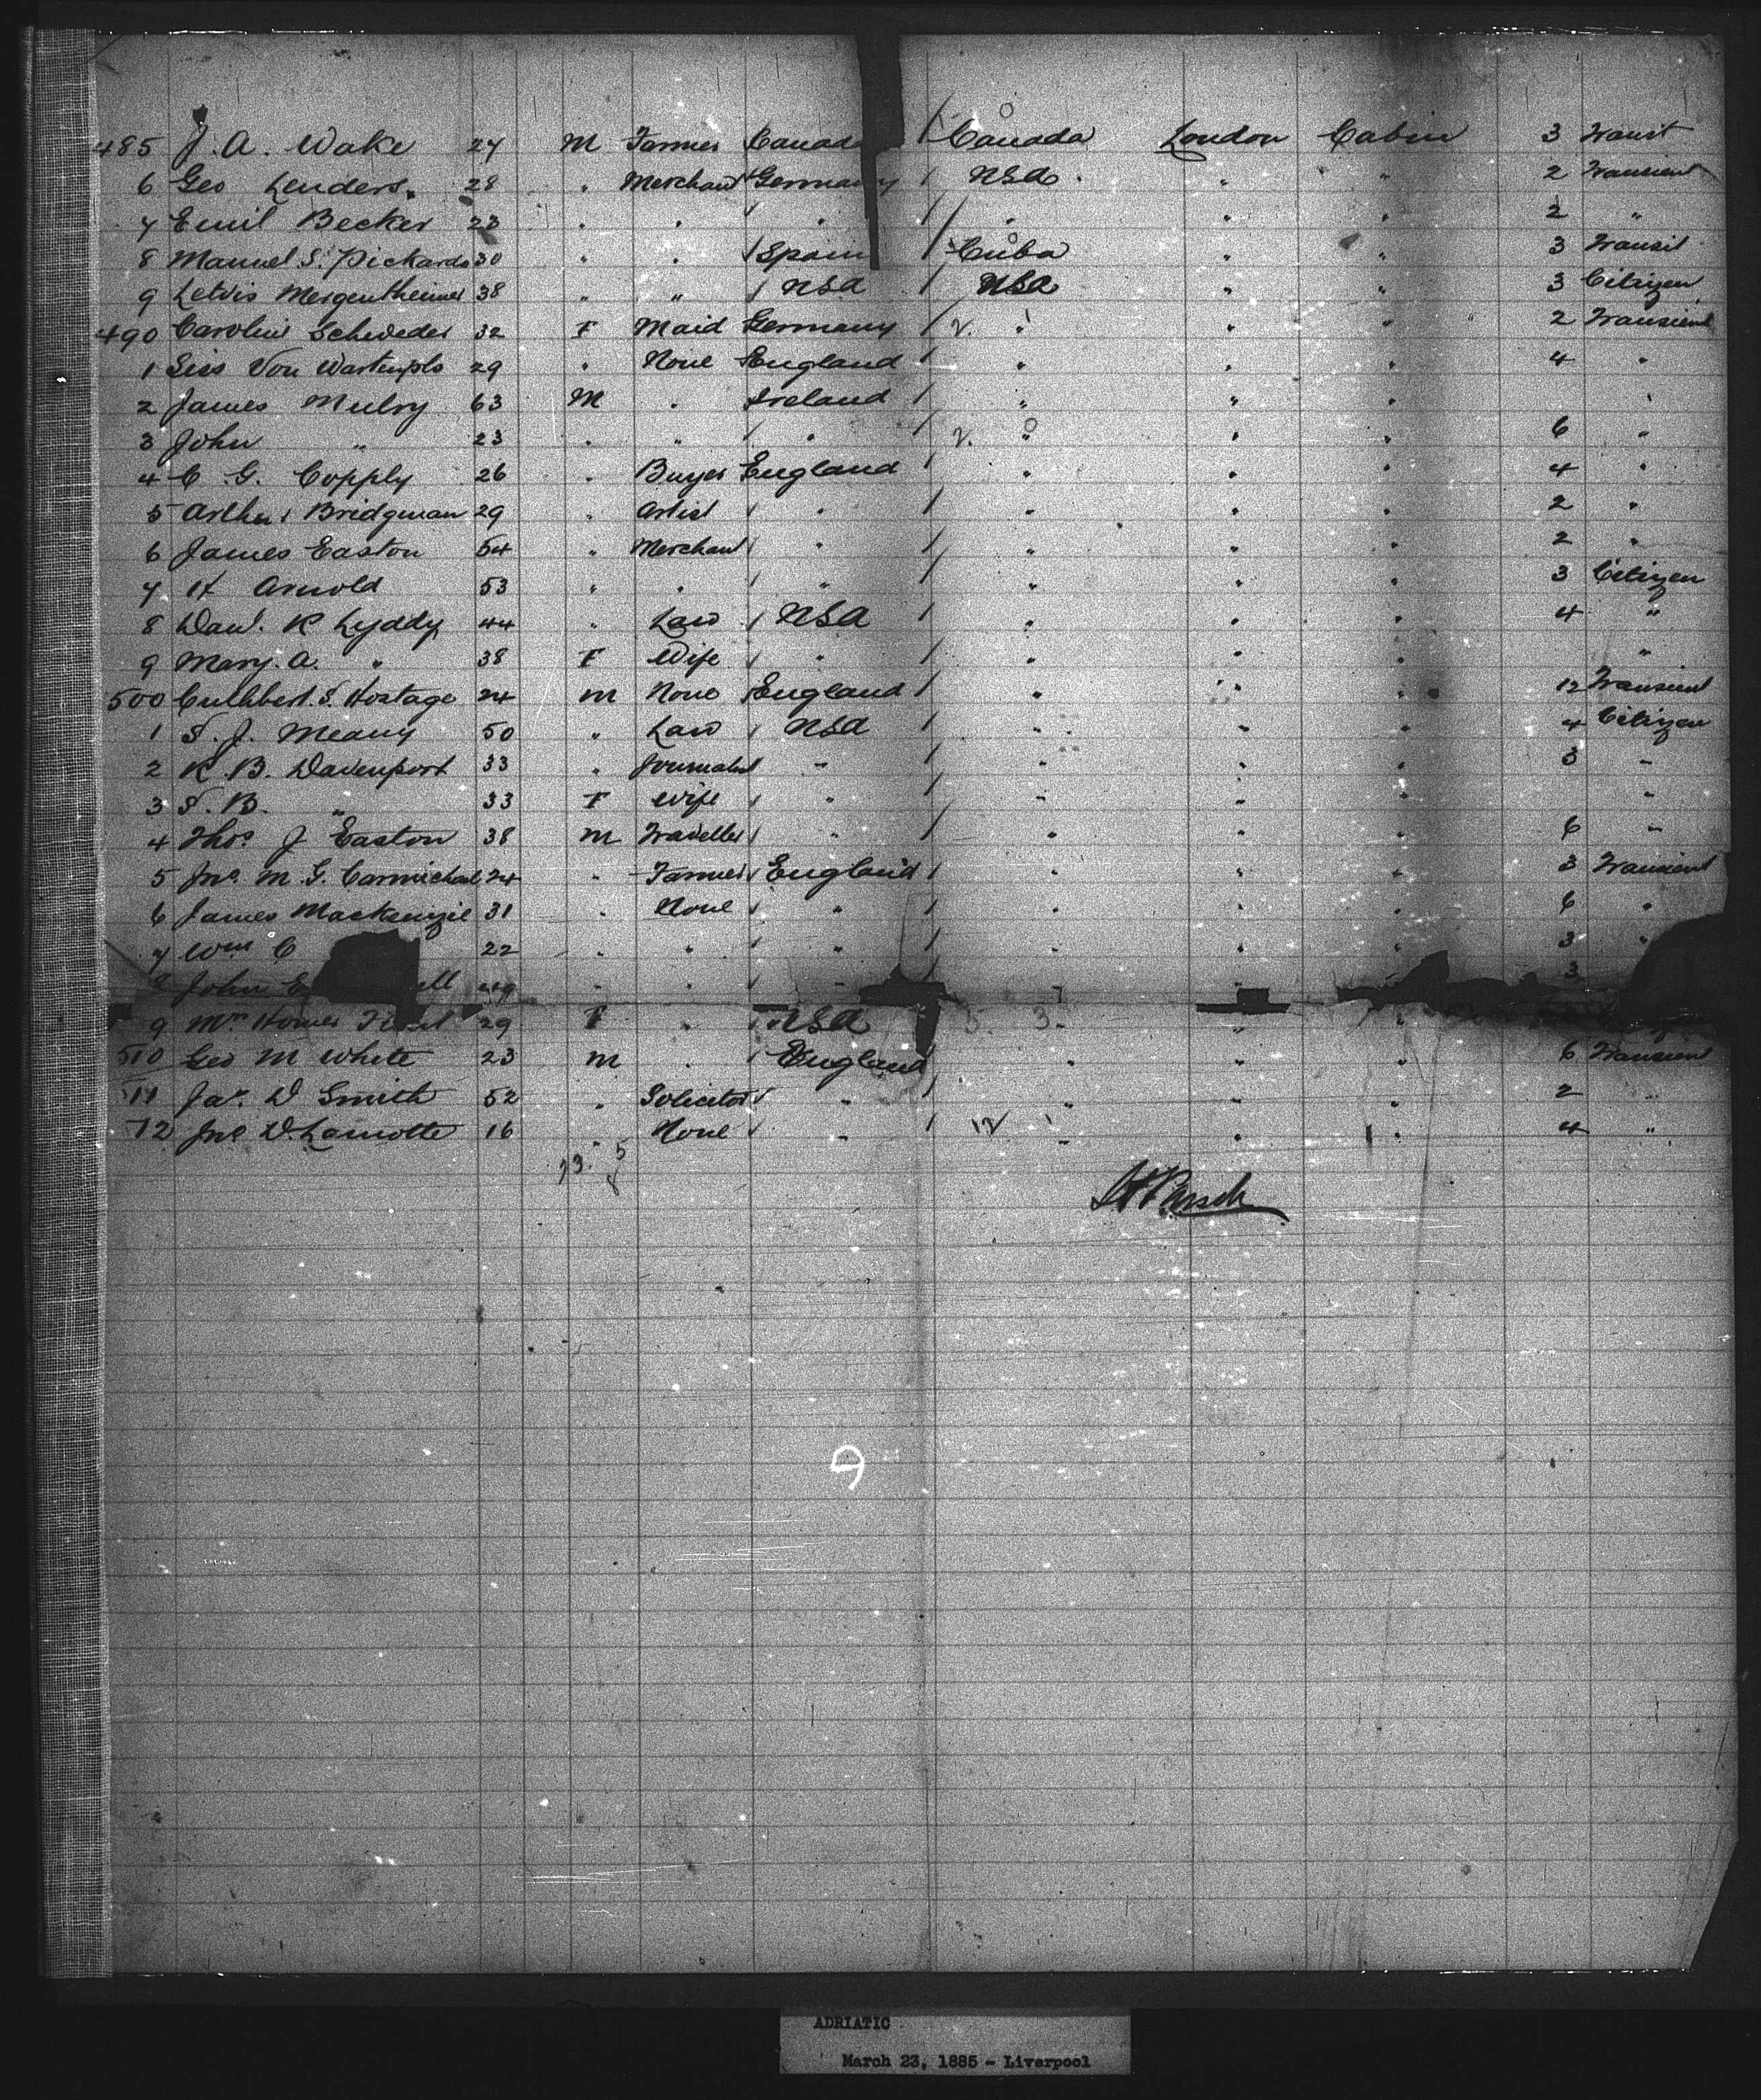 485 J. A. Wake 24 M Farmer Canada Canada London Cabin 3 Transit
6 Geo Lenders 28 " Merchant Germany USA " " 2 Transient
7 Emil Becker 23 " " " " " " 2 "
8 Manuel S. Pickardo 30 " " Spain Cuba " " 3 Transit
9 Lewis Mergentheimer 38 " " USA USA " " 3 Citizen
490 Caroline Schweder 32 F Maid Germany " " " 2 Transient
1 Von 29 " None England " " " 4 "
2 James Mulry 63 M " Ireland " " "
3 John " 23 " " " " " " 6 "
4 C. G. Copply 26 " Buyer England " " " 4 "
5 Arthur Bridgman 29 " Artist " " " " 2 "
6 James Easton 54 " Merchant " " " " 2 "
7 H Arnold 53 " " " " " " 3 Citizen
8 Danl. R Lyddy 44 " Law USA " " " 4 "
9 Mary. A. " 38 F Wife " " " " "
500 Cuthbert. S. Hostage 24 M None England " " " 12 Transient
1 S. J. Meany 50 " Law USA " " " 4 Citizen
2 R. B. Davenport 33 " Journalist " " " " 3 "
3 S. B. " 33 F Wife " " " " "
4 Thos J Easton 38 M Traveller " " " " 6 "
5 Jno M. G. Carmichael 24 " Farmer England " " " 3 Transient
6 James Mackenzie 31 " None " " " " 6 "
7 Wm C 22 " " " " " " 3 "
8 John E ll 49 " " " 3
9 Mrs Homer 29 F " USA " "
510 Geo M White 23 M " England " " " 6 Transient
11 Jas. D Smith 52 " Solicitor " " " " 2 "
12 Jno D. Lamotte 16 " None " " " " 4 "
ADRIATIC
March 23, 1885 - Liverpool